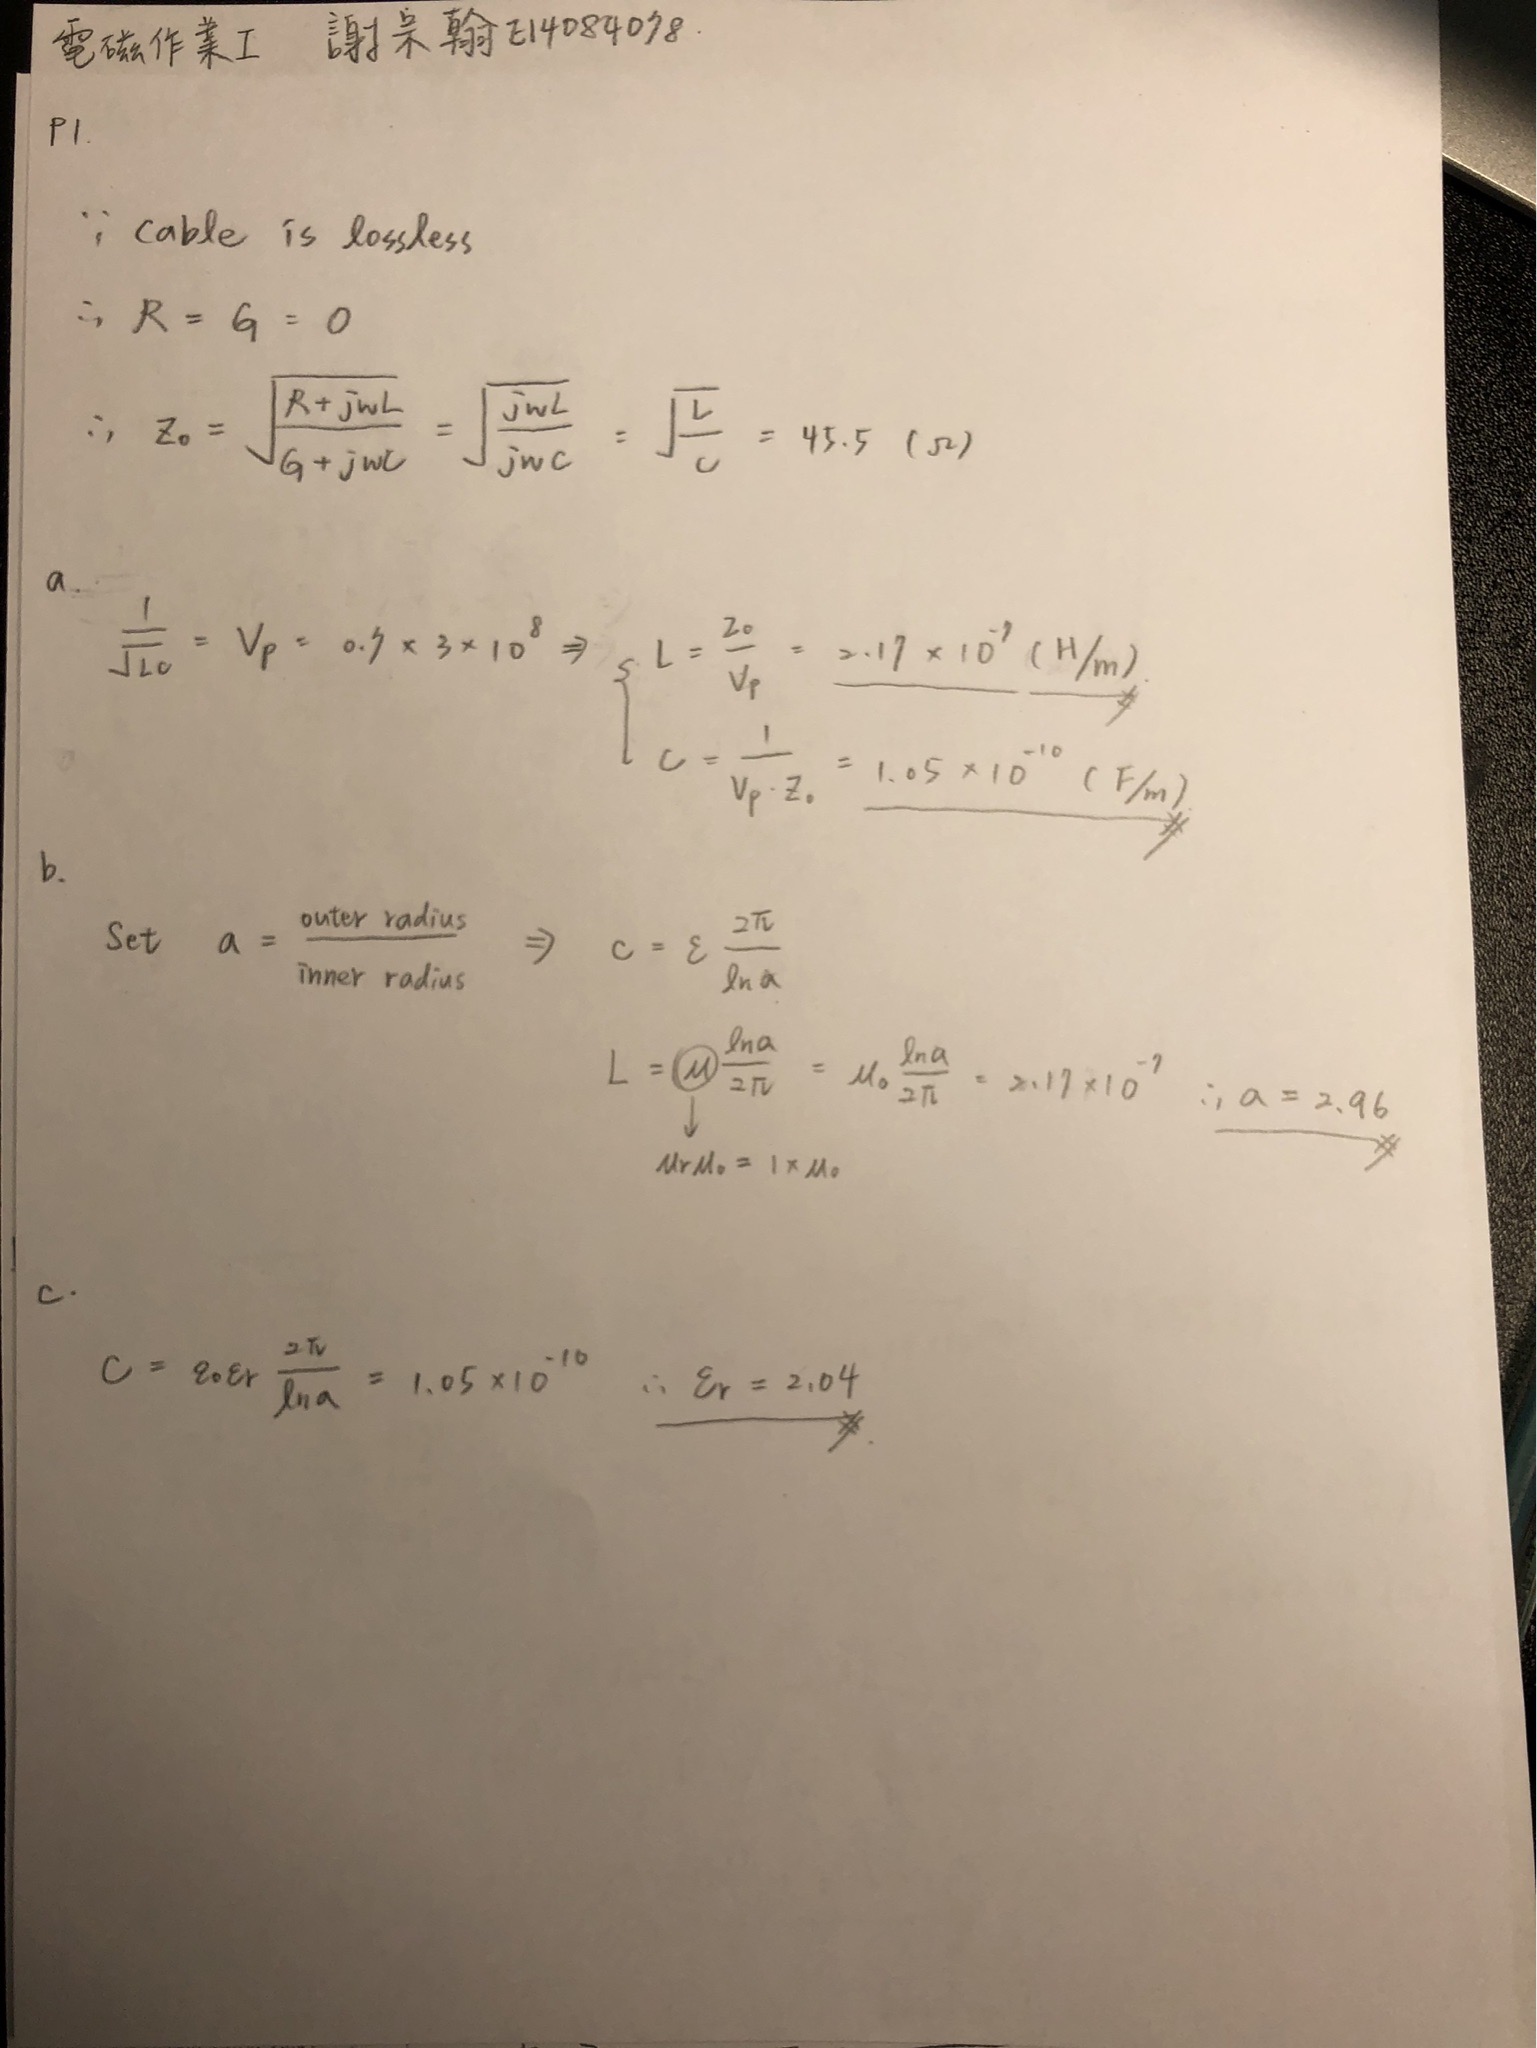 電磁作業I 謝宗翰 E14084078.
P1.
∵ cable is lossless
∴ R = G = 0
∴ Z₀ = √((R+jωL)/(G+jωC)) = √(jωL/jωC) = √(L/C) = 45.5 (Ω)
a.
1/√LC = Vp = 0.7 × 3 × 10⁸ ⇒ { L = Z₀/Vp = 2.17 × 10⁻⁷ (H/m).
C = 1/(Vp · Z₀) = 1.05 × 10⁻¹⁰ (F/m).
b.
Set a = outer radius / inner radius ⇒ C = ε 2π/ln a
L = μ ln a/2π = μ₀ ln a/2π = 2.17 × 10⁻⁷ ∴ a = 2.96
↓
μrμ₀ = 1 × μ₀
c.
C = ε₀εr 2π/ln a = 1.05 × 10⁻¹⁰ ∴ εr = 2.04